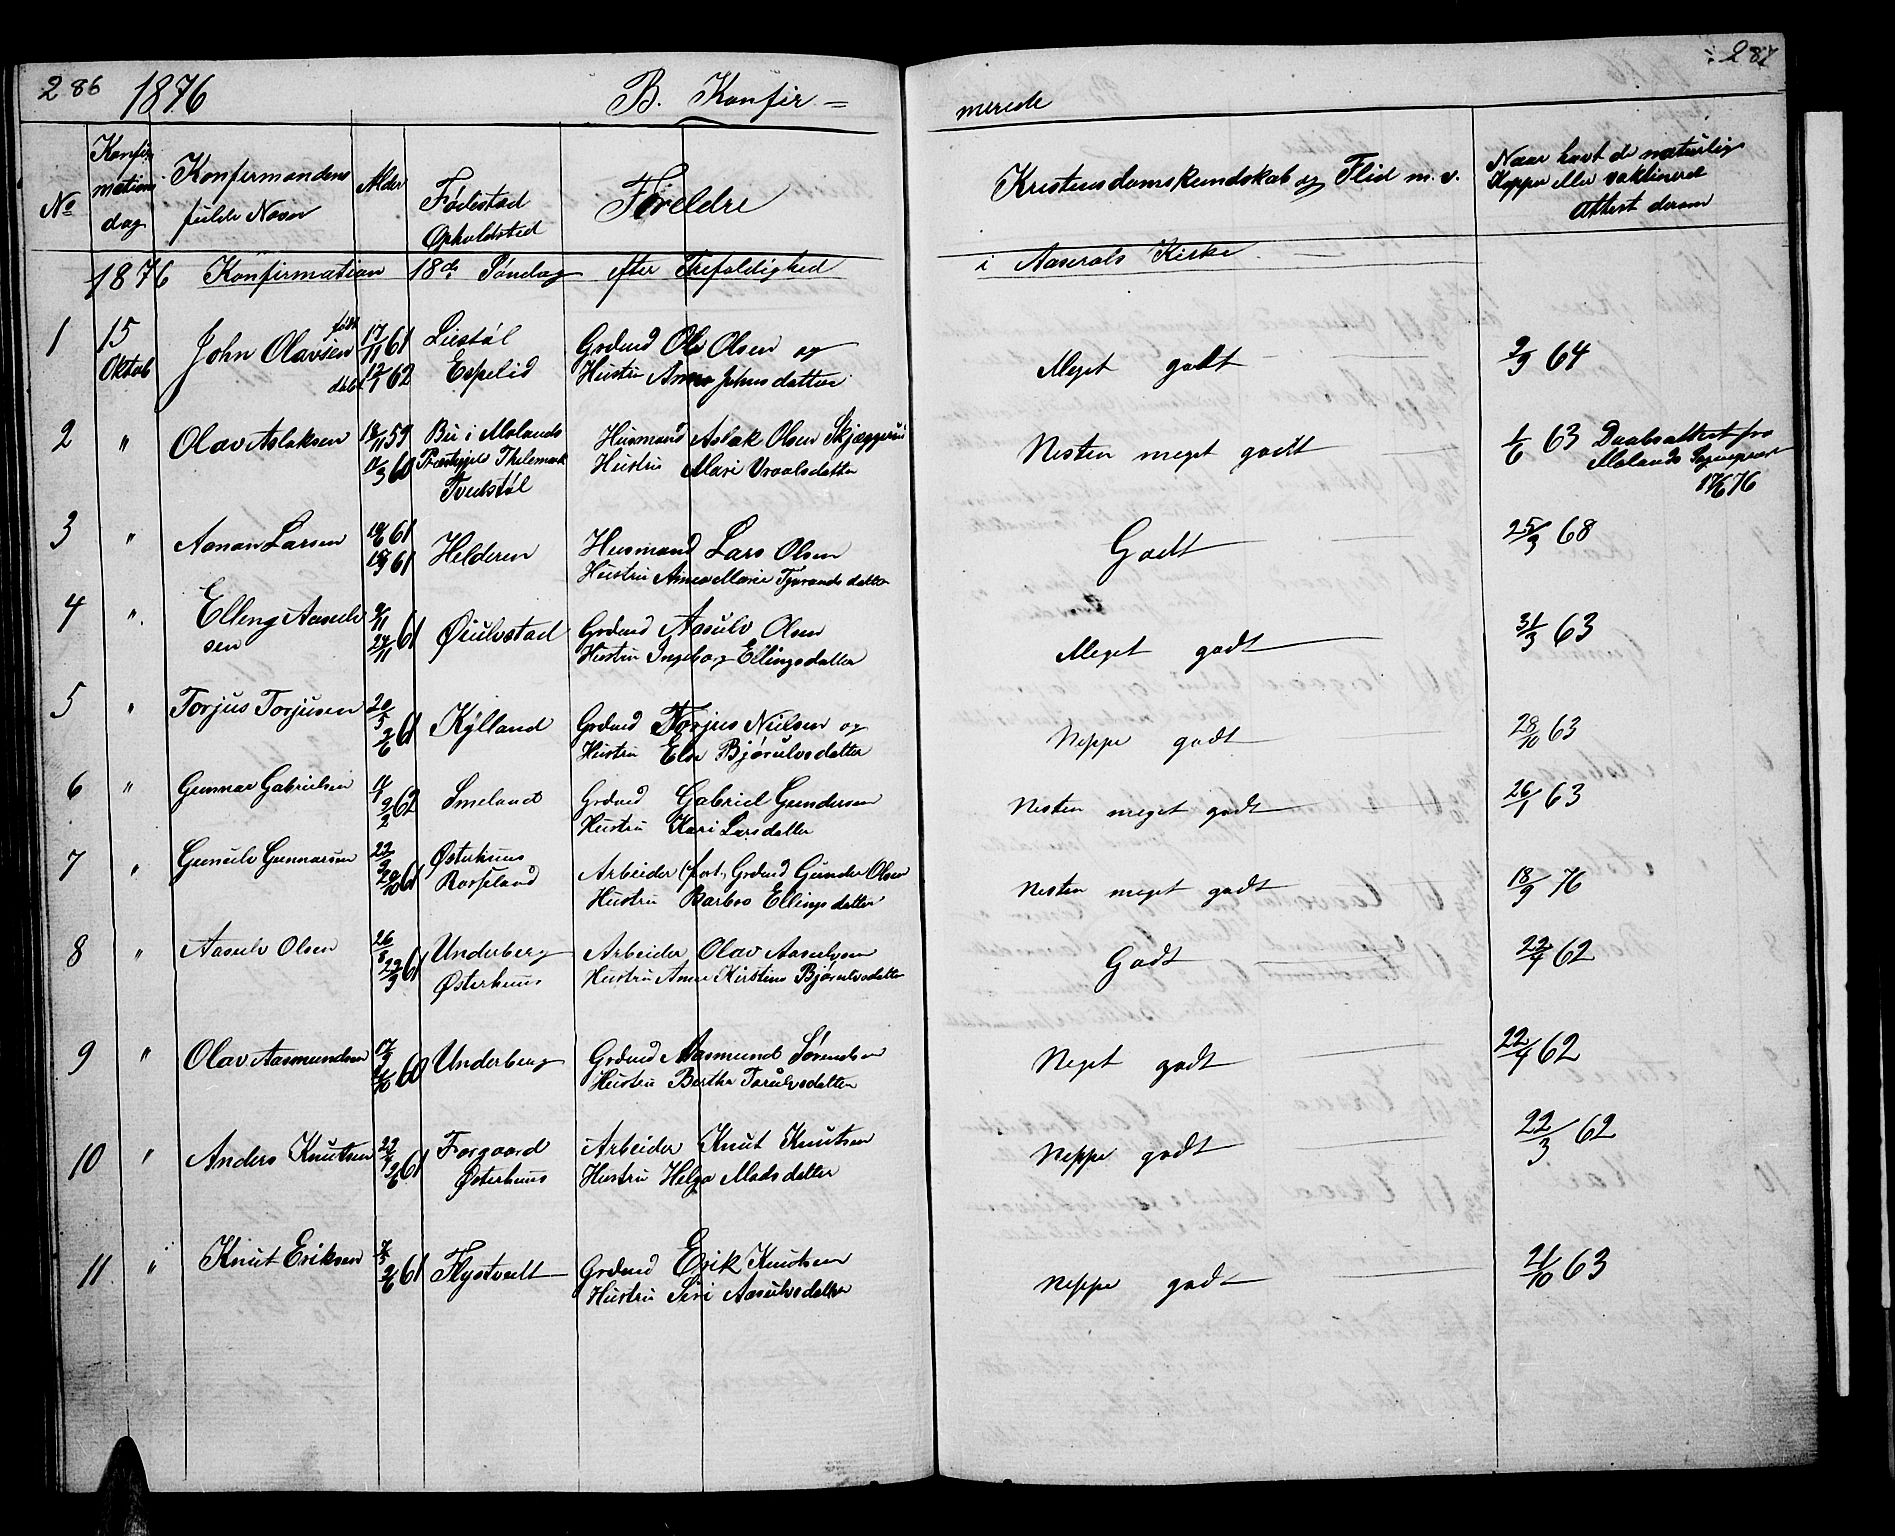 286 1876 B. Konfir =
merede 287
No
Konfir
mations
dag
Konfirmandens
fulde Navn
Alder
Fødestad
Opholdsted
Forældre
Kristendomskundskab og Flid m. v.
Naar havt de naturlige
Kopper eller vaktineret
Attest derom
1876 Konfirmation 18de Søndag efter Trefoldighed i Aaserals Kirke
1 15 Oktob John Olavsen født 17/11 61 døbt 12/1 62 Liestøl
Espelid
Grdmd Ole Olsen og
Hustru Anne Johnsdatter
Meget godt 9/9 64
2 " Olav Aslaksen 18/11 59 Bu i Molands
Præstegjeld Thelemark
Tveitstøl
Husmand Aslak Olsen Skjæggerud
Hustru Mari Vraalsdatter
Nesten meget godt 1/6 63 Daabsattest fra
Molands Sognepræst
17/6 76
3 " Aanan Larsen 61 61 Helderen
Husmand Lars Olsen
Hustru Anne Marie Tjørandsdatter
Godt 25/3 68
4 " Elleng Aasulv
sen 9/11 24/11 61 Øiulvstad
Grdmd Aasulv Olsen
Hustru Ingeborg Ellingsdatter
Meget godt 31/3 63
5 " Torjus Torjusen 20/5 9/6 61 Kylland
Grdmd Torjus Nielsen og
Hustru Else Bjørulvsdatter
Neppe godt 28/10 63
6 " Gunnar Gabrielsen 11/1 2/2 62 Smeland
Grdmd Gabriel Gundersen
Hustru Kari Larsdatter
Nesten meget godt 26/1 63
7 " Gunulv Gunnarsen 22/9 20/10 61 Østerhuus
Rosseland
Arbeider (fort. Grdmd Gunder Olsen
Hustru Barbro Ellingsdatter
Nesten meget godt 18/9 76
8 " Aasulv Olsen 26/8 22/9 61 Underberg
Østerhuus
Arbeider Olav Aasulvsen
Hustru Anne Kirstine Bjørulvsdatter
Godt 22/4 62
9 " Olav Aasmundsen 17/9 21/10 60 Underberg
Grdmd Aasmund Sørensen
Hustru Berthe Torulvsdatter
Meget godt 22/4 62
10 " Anders Knutsen 22/4 2/6 61 Forgaard
Østerhuus
Arbeider Knut Knutsen
Hustru Helga Madsdatter
Neppe godt 22/3 62
11 " Knut Eriksen 7/5 2/6 61 Flystveit
Grdmd Erik Knutsen
Hustru Siri Aasulvsdatter
Neppe godt 21/10 63